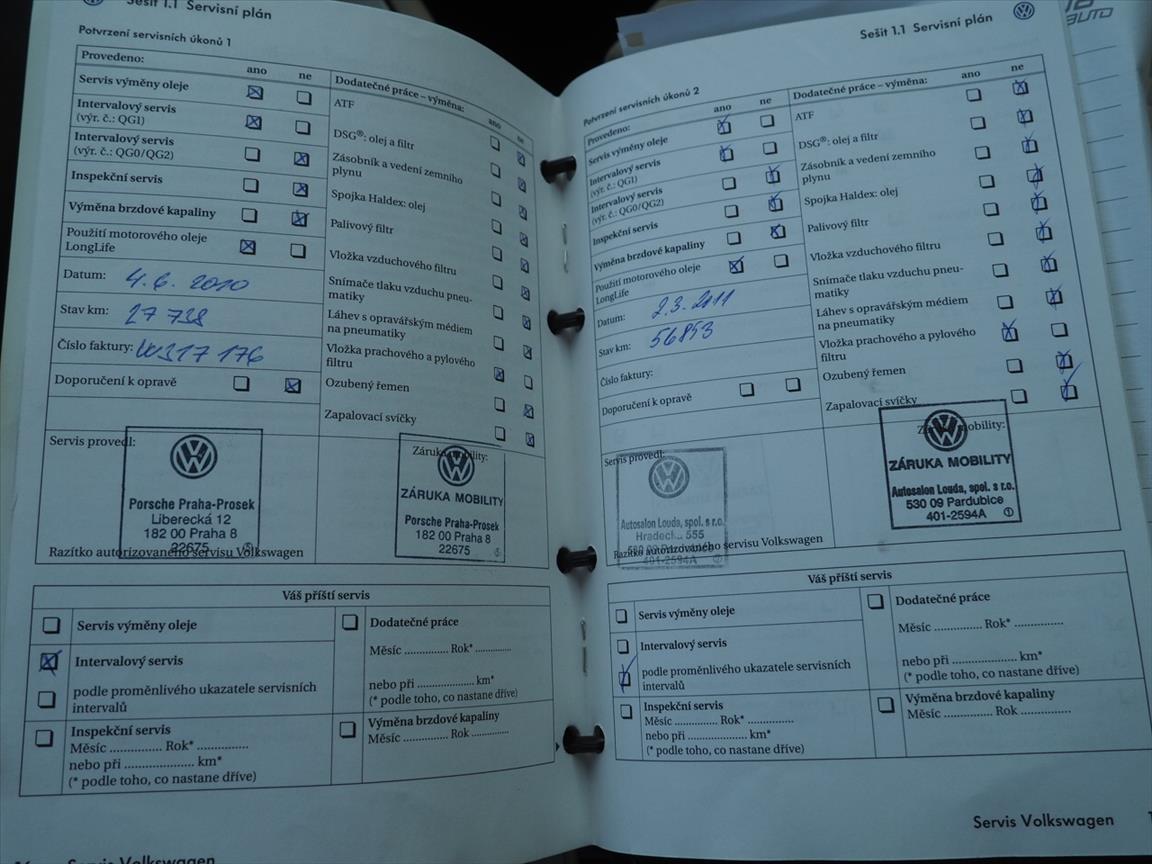 Sešit 1.1 Servisní plán
Potvrzení servisních úkonů 1
Provedeno:
ano ne
Servis výměny oleje
Intervalový servis
(výr. č.: QG1)
Intervalový servis
(výr. č.: QG0/QG2)
Inspekční servis
Výměna brzdové kapaliny
Použití motorového oleje
LongLife
Datum: 4.6.2010
Stav km: 27 738
Číslo faktury: W317176
Doporučení k opravě
Dodatečné práce – výměna:
ano ne
ATF
DSG®: olej a filtr
Zásobník a vedení zemního
plynu
Spojka Haldex: olej
Palivový filtr
Vložka vzduchového filtru
Snímače tlaku vzduchu pneu-
matiky
Láhev s opravářským médiem
na pneumatiky
Vložka prachového a pylového
filtru
Ozubený řemen
Zapalovací svíčky
Servis provedl:
Porsche Praha-Prosek
Liberecká 12
182 00 Praha 8
22675
Razítko autorizovaného servisu Volkswagen
Záruka mobility:
ZÁRUKA MOBILITY
Porsche Praha-Prosek
182 00 Praha 8
22675
Váš příští servis
Servis výměny oleje
Intervalový servis
podle proměnlivého ukazatele servisních
intervalů
Inspekční servis
Měsíc ............... Rok* ...............
nebo při .................... km*
(* podle toho, co nastane dříve)
Dodatečné práce
Měsíc ............. Rok* .............
nebo při .................. km*
(* podle toho, co nastane dříve)
Výměna brzdové kapaliny
Měsíc ............... Rok .............
Servis Volkswagen
Sešit 1.1 Servisní plán
Potvrzení servisních úkonů 2
Provedeno:
ano ne
Servis výměny oleje
Intervalový servis
(výr. č.: QG1)
Intervalový servis
(výr. č.: QG0/QG2)
Inspekční servis
Výměna brzdové kapaliny
Použití motorového oleje
LongLife
Datum: 2.3.2011
Stav km: 56853
Číslo faktury:
Doporučení k opravě
Dodatečné práce – výměna:
ano ne
ATF
DSG®: olej a filtr
Zásobník a vedení zemního
plynu
Spojka Haldex: olej
Palivový filtr
Vložka vzduchového filtru
Snímače tlaku vzduchu pneu-
matiky
Láhev s opravářským médiem
na pneumatiky
Vložka prachového a pylového
filtru
Ozubený řemen
Zapalovací svíčky
Servis provedl:
Autosalon Louda, spol. s r.o.
555
401-2594A
Razítko autorizovaného servisu Volkswagen
mobility:
ZÁRUKA MOBILITY
Autosalon Louda, spol. s r.o.
530 09 Pardubice
401-2594A
Váš příští servis
Servis výměny oleje
Intervalový servis
podle proměnlivého ukazatele servisních
intervalů
Inspekční servis
Měsíc ............... Rok* ...............
nebo při .................... km*
(* podle toho, co nastane dříve)
Dodatečné práce
Měsíc ............... Rok* ...............
nebo při .................... km*
(* podle toho, co nastane dříve)
Výměna brzdové kapaliny
Měsíc ............... Rok ...............
Servis Volkswagen
AUTO